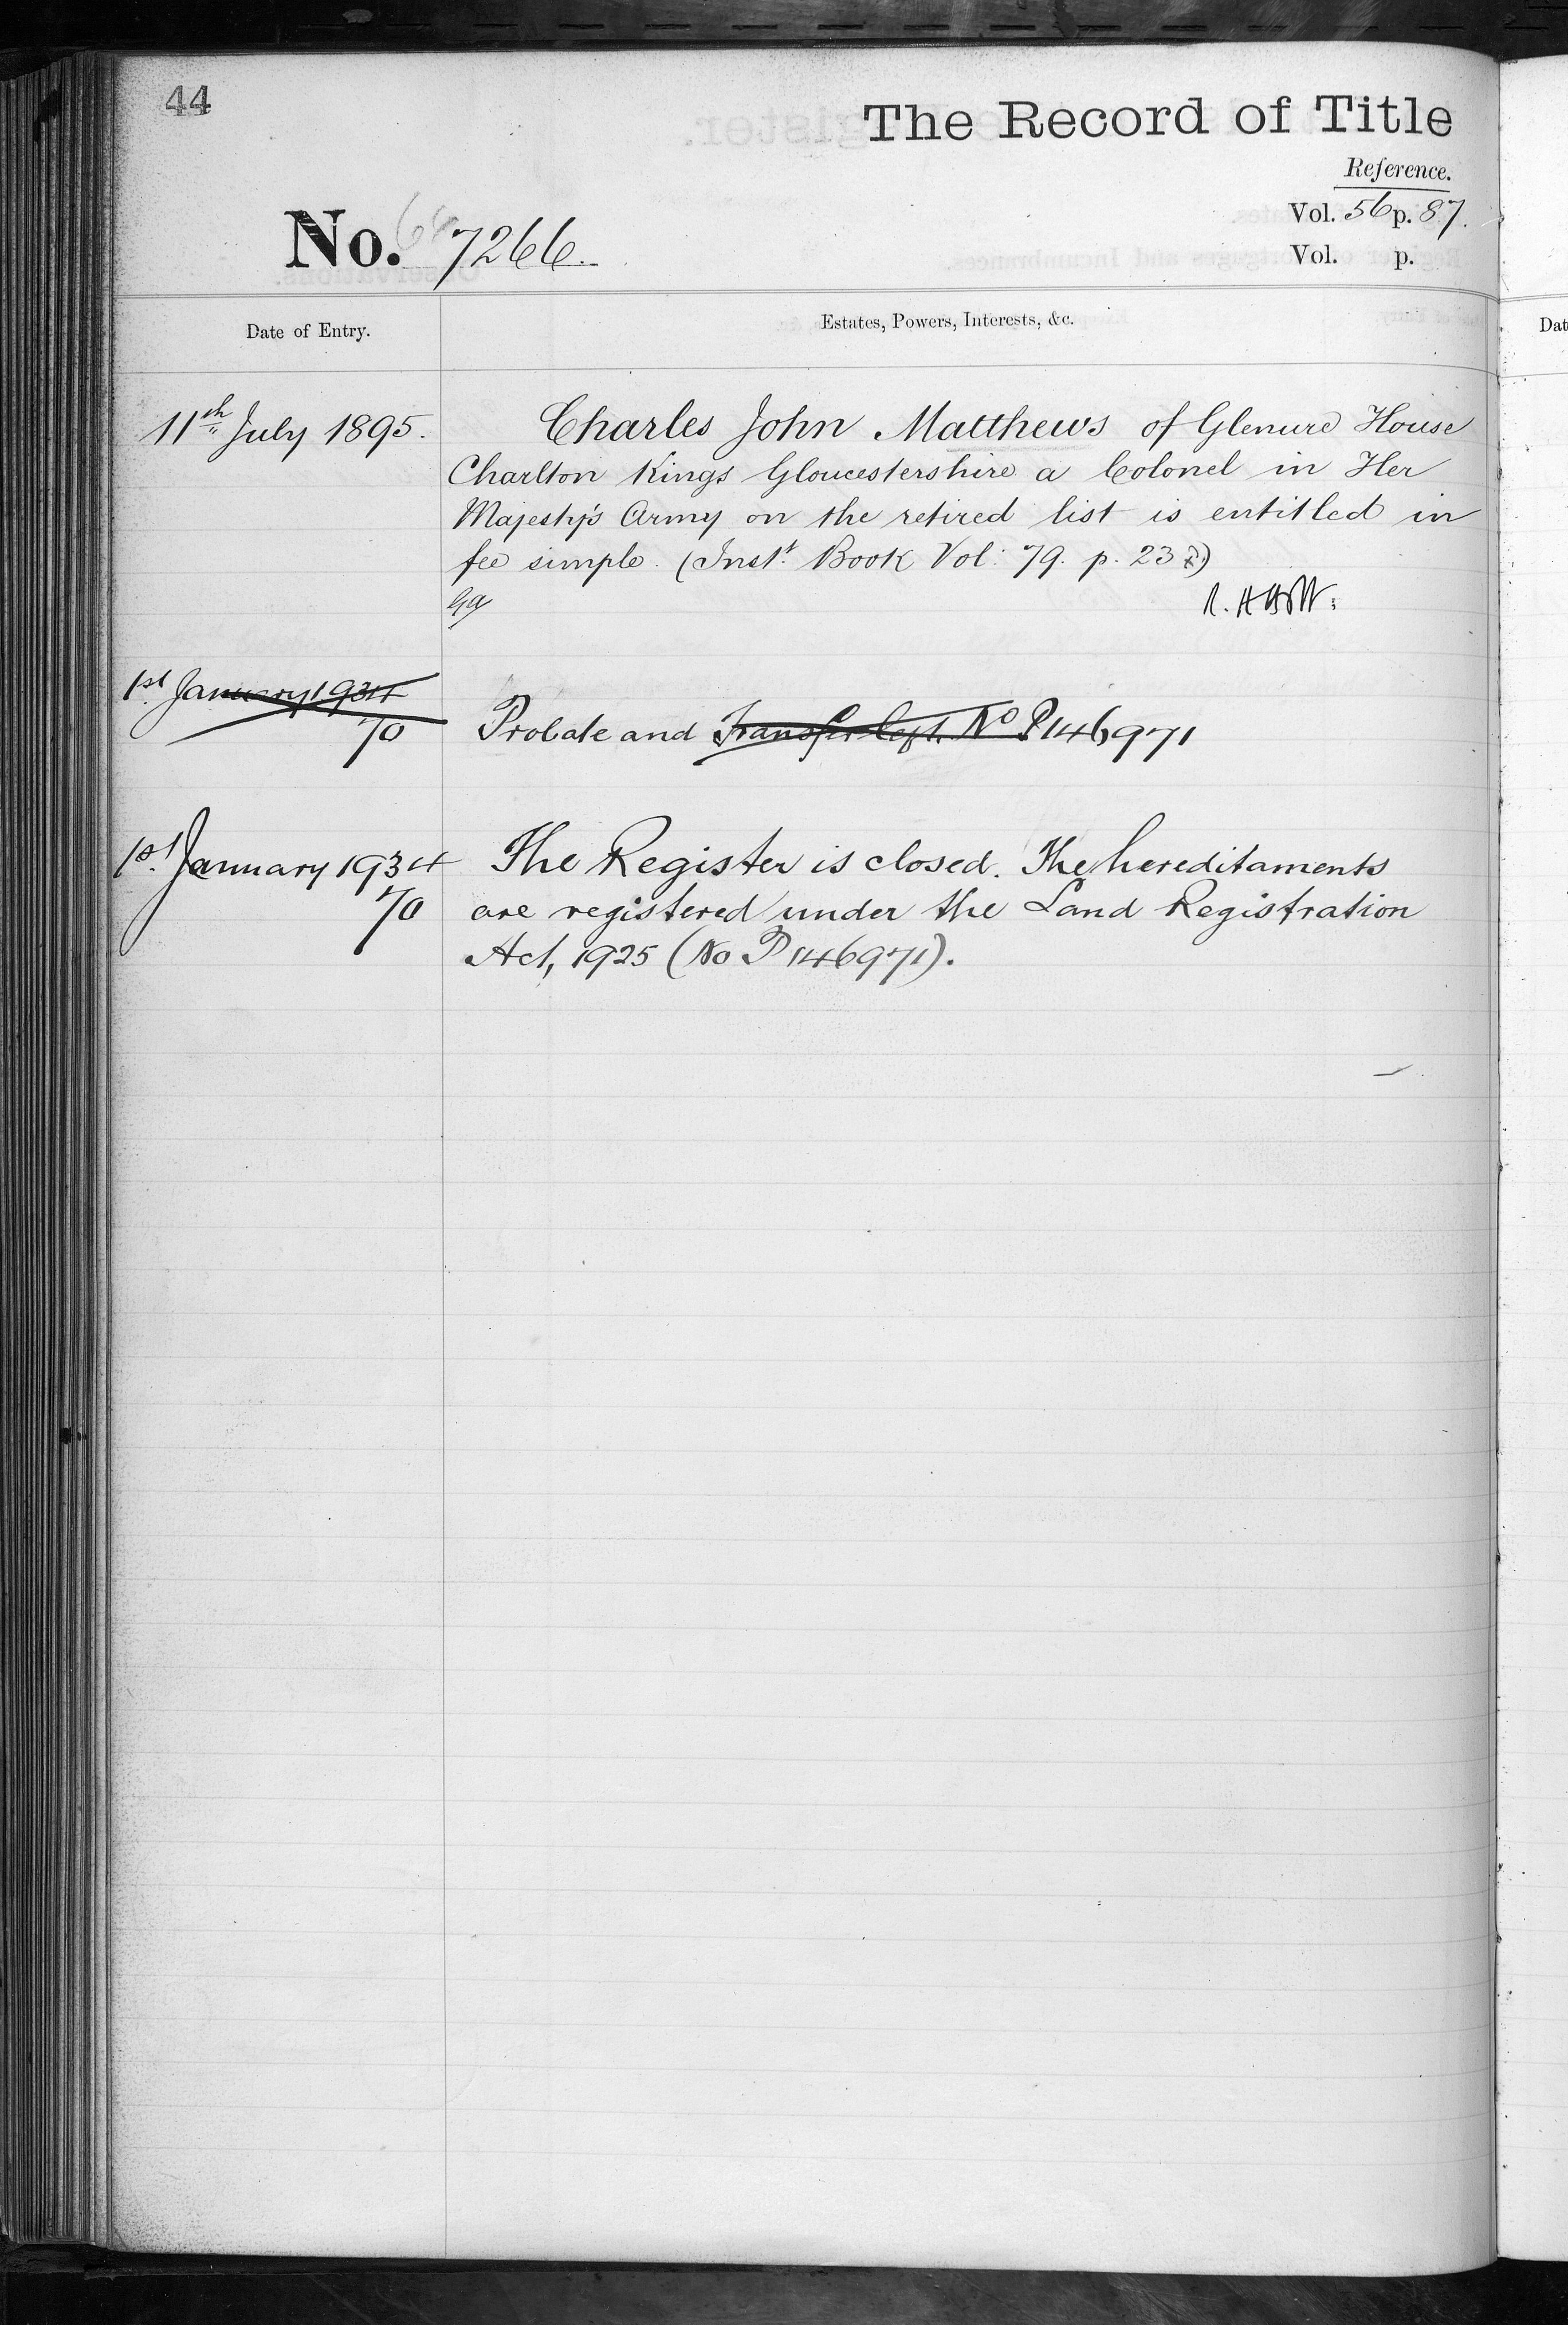 44
The Record of Title
Reference.
Vol. 56 p. 87.
No. 7266.
Vol. p.
Date of Entry.
Estates, Powers, Interests, &c.
11th July 1895.
Charles John Matthews of Glenure House
Charlton Kings Gloucestershire a Colonel in Her
Majesty's Army on the retired list is entitled in
fee simple. (Inst. Book Vol: 79. p. 23)
1st January 1934
70
Probate and Transfer left. No P146971
1st January 1934
70
The Register is closed. The hereditaments
are registered under the Land Registration
Act, 1925 (No P146971).
Dat